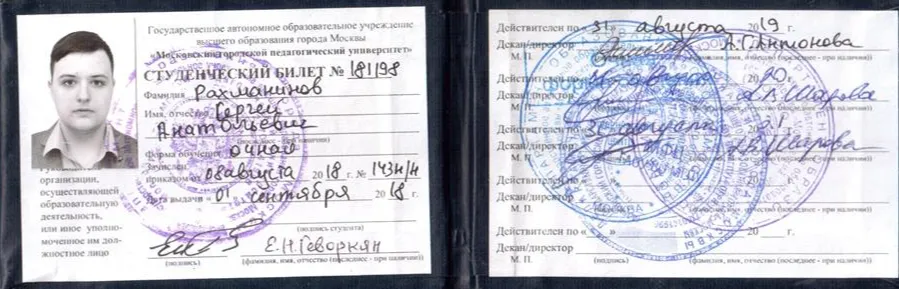 Государственное автономное образовательное учреждение
высшего образования города Москвы
«Московский городской педагогический университет»
СТУДЕНЧЕСКИЙ БИЛЕТ № 181198
Фамилия Рахманинов
Имя, отчество Сергей
Анатольевич
(последнее - при наличии)
Форма обучения очная
Зачислен
приказом от 08 августа 2018 г. №
Дата выдачи «01» сентября 2018 г.
(подпись студента)
организации,
осуществляющей
образовательную
деятельность,
или иное уполно-
моченное им дол-
жностное лицо
Е.Н.Геворкян
(подпись) (фамилия, имя, отчество (последнее - при наличии))
Действителен по «31» августа 2019 г.
Декан/директор А.Г.Антонова
М. П. (фамилия, имя, отчество (последнее - при наличии))
Действителен по августа 2020 г.
Декан/директор Шарова
М. П.
Действителен по «31 августа
Декан/директор Шарова
М. П. (фамилия, имя, отчество (последнее - при наличии))
Действителен по « 20 г.
Декан/директор
М. П. (фамилия, имя, отчество (последнее - при наличии))
МОСКВА
Действителен по « 20 г.
Декан/директор
М. П. (подпись) (фамилия, имя, отчество (последнее - при наличии))